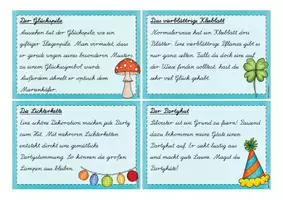 Der Glückspilz
Aussehen tut der Glückspilz, wie ein
giftiger Fliegenpilz. Man vermutet, dass
er gerade wegen seines besonderen Musters
zu einem Glückssymbol wurde.
Außerdem ähnelt er optisch dem
Marienkäfer.
Das vierblättrige Kleeblatt
Normalerweise hat ein Kleeblatt drei
Blätter. Eine vierblättrige Pflanze gibt es
nur ganz selten. Falls du doch eins auf
der Wiese finden solltest, hast du
sehr viel Glück gehabt.
Die Lichterkette
Eine schöne Dekoration machen jede Party
zum Hit. Mit mehreren Lichterketten
entsteht direkt eine gemütliche
Partystimmung. So können die großen
Lampen aus bleiben.
Der Partyhut
Silvester ist ein Grund zu feiern! Passend
dazu bekommen meine Gäste einen
Partyhut auf. Er sieht lustig aus
und macht gute Laune. Magst du
Partyhüte?